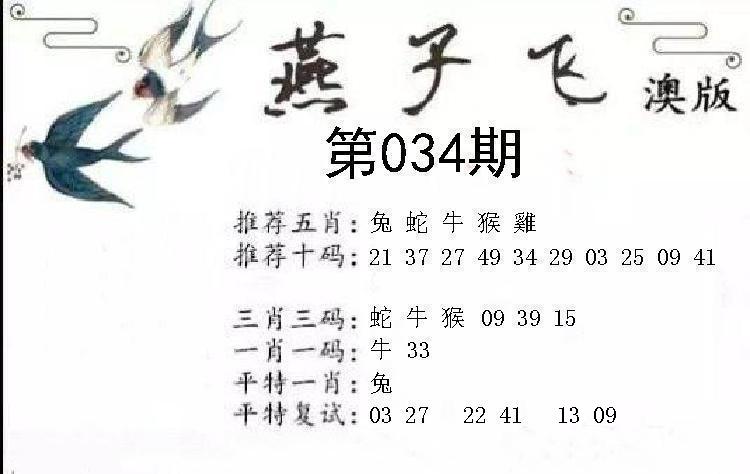 燕子飞 澳版
第034期
推荐五肖：兔 蛇 牛 猴 雞
推荐十码：21 37 27 49 34 29 03 25 09 41
三肖三码：蛇 牛 猴 09 39 15
一肖一码：牛 33
平特一肖：兔
平特复试：03 27 22 41 13 09